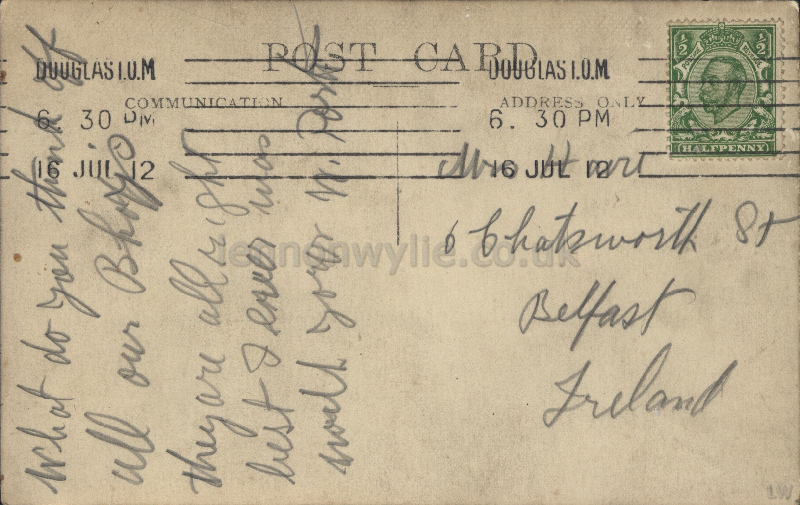 POST CARD
DOUGLAS I.O.M
6. 30 PM
16 JUL 12
DOUGLAS I.O.M
6. 30 PM
16 JUL 12
COMMUNICATION
ADDRESS ONLY
1/2 1/2
HALFPENNY
What do you think off
all our Bhoys
they are all right
best I ever was
with your W.
Mrs
6 Chatsworth St
Belfast
Ireland
lennonwylie.co.uk
LW